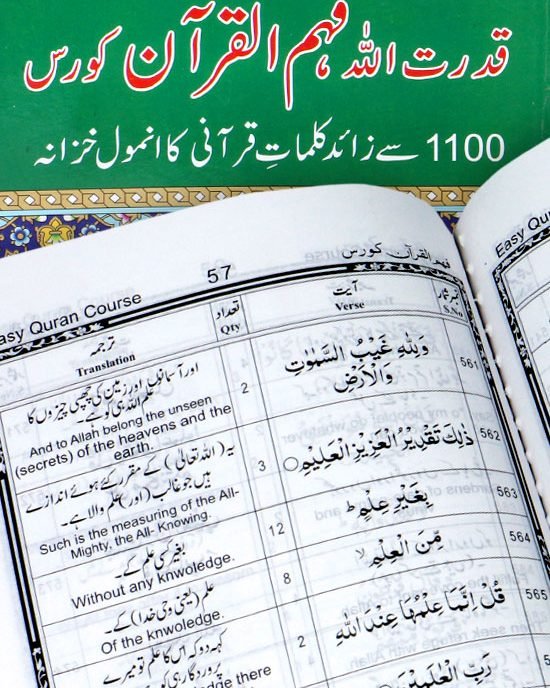 قدرت اللہ فہم القرآن کورس
1100 سے زائد کلماتِ قرآنی کا انمول خزانہ
Easy Quran Course
57
فہم القرآن کورس
Easy Quran
نمبر شمار
S.No
آیت
Verse
تعداد
Qty
ترجمہ
Translation
561
وَلِلّٰهِ غَيْبُ السَّمٰوٰتِ
وَالْاَرْضِ
2
اور آسمانوں اور زمین کی چھپی چیزوں کا
علم اللہ ہی کو ہے۔
And to Allah belong the unseen
(secrets) of the heavens and the
earth.
562
ذٰلِكَ تَقْدِيْرُ الْعَزِيْزِ الْعَلِيْمِ
3
یہ (اللہ تعالیٰ) کے مقرر کئے ہوئے اندازے
ہیں جو غالب (اور) علم والا ہے۔
Such is the measuring of the All-
Mighty, the All- Knowing.
563
بِغَيْرِ عِلْمٍ ط
12
بغیر کسی علم کے۔
Without any knwoledge.
564
مِّنَ الْعِلْمِ لا
8
علم (یعنی وحی خدا) کے۔
Of the knwoledge.
565
قُلْ اِنَّمَا عِلْمُهَا عِنْدَ اللّٰهِ
2
کہہ دو کہ اس کا علم تو میرے
پروردگار ہی کو
there
رَبِّ الْعٰلَمِيْنَ